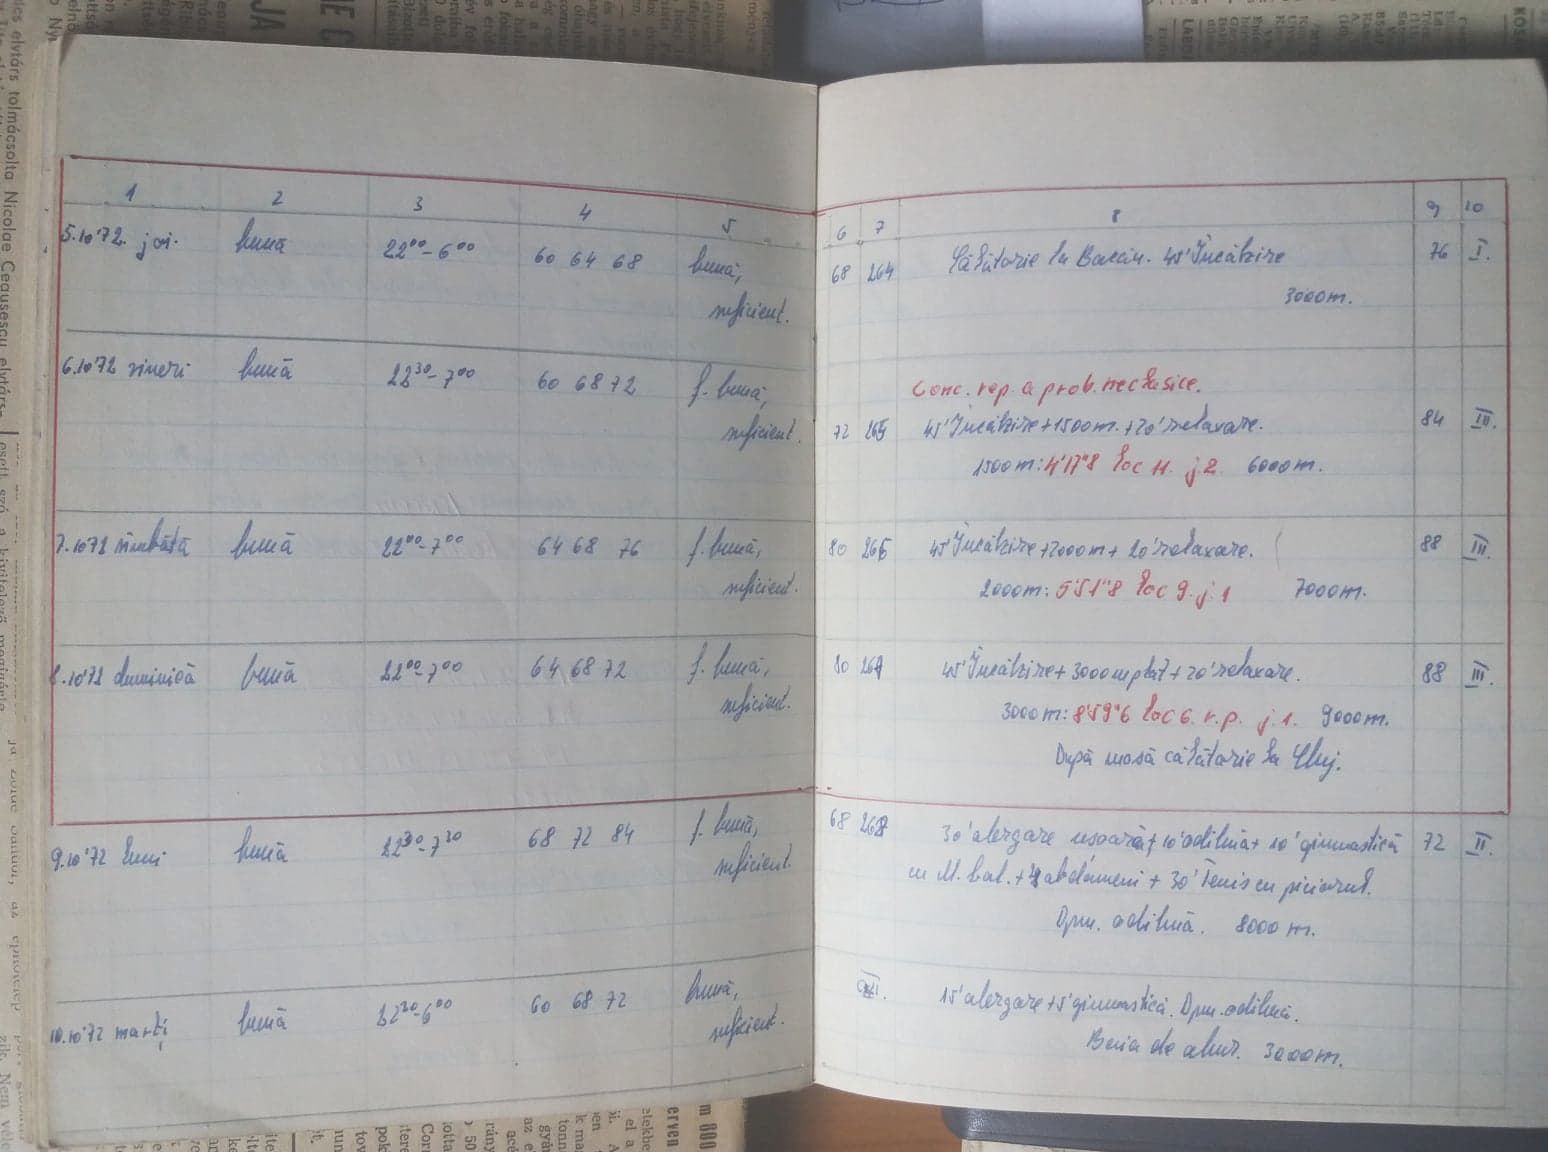 1 2 3 4 5 6 7 8 9 10
5.10'72. joi. bună 22⁰⁰-6⁰⁰ 60 64 68 bună, 68 264 Călătorie la Bacău. 45' Încălzire 76 I.
suficient. 3000m.
6.10'72 vineri bună 22³⁰-7⁰⁰ 60 68 72 f. bună,
Conc. rep. a prob. neclasice.
suficient. 72 265 45' Încălzire+1500m.+20' relaxare. 84 III.
1500m: 4'17"8 loc 11. j.2. 6000m.
7.10'72 sîmbătă bună 22⁰⁰-7⁰⁰ 64 68 76 f. bună, 80 266 45' Încălzire+2000m+ 20' relaxare. 88 III.
suficient. 2000m: 5'51"8 loc 9. j.1 7000m.
8.10'72 duminică bună 22⁰⁰-7⁰⁰ 64 68 72 f. bună, 80 267 45' Încălzire+ 3000m plat + 20' relaxare. 88 III.
suficient. 3000m: 8'59"6 loc 6. r.p. j.1. 9000m.
După masă călătorie la Cluj.
9.10'72 luni bună 22³⁰-7³⁰ 68 72 84 f. bună, 68 268 30' alergare usoară+ 10' odihnă+ 10' gimnastică 72 II.
suficient. cu M. bal. + abdomeni + 30' Tenis cu piciorul.
Dpm. odihnă. 8000 m.
10.10'72 marți bună 22³⁰-6⁰⁰ 60 68 72 bună, 15' alergare +5' gimnastică. Dpm. odihnă.
suficient. Baia de abur. 3000m.